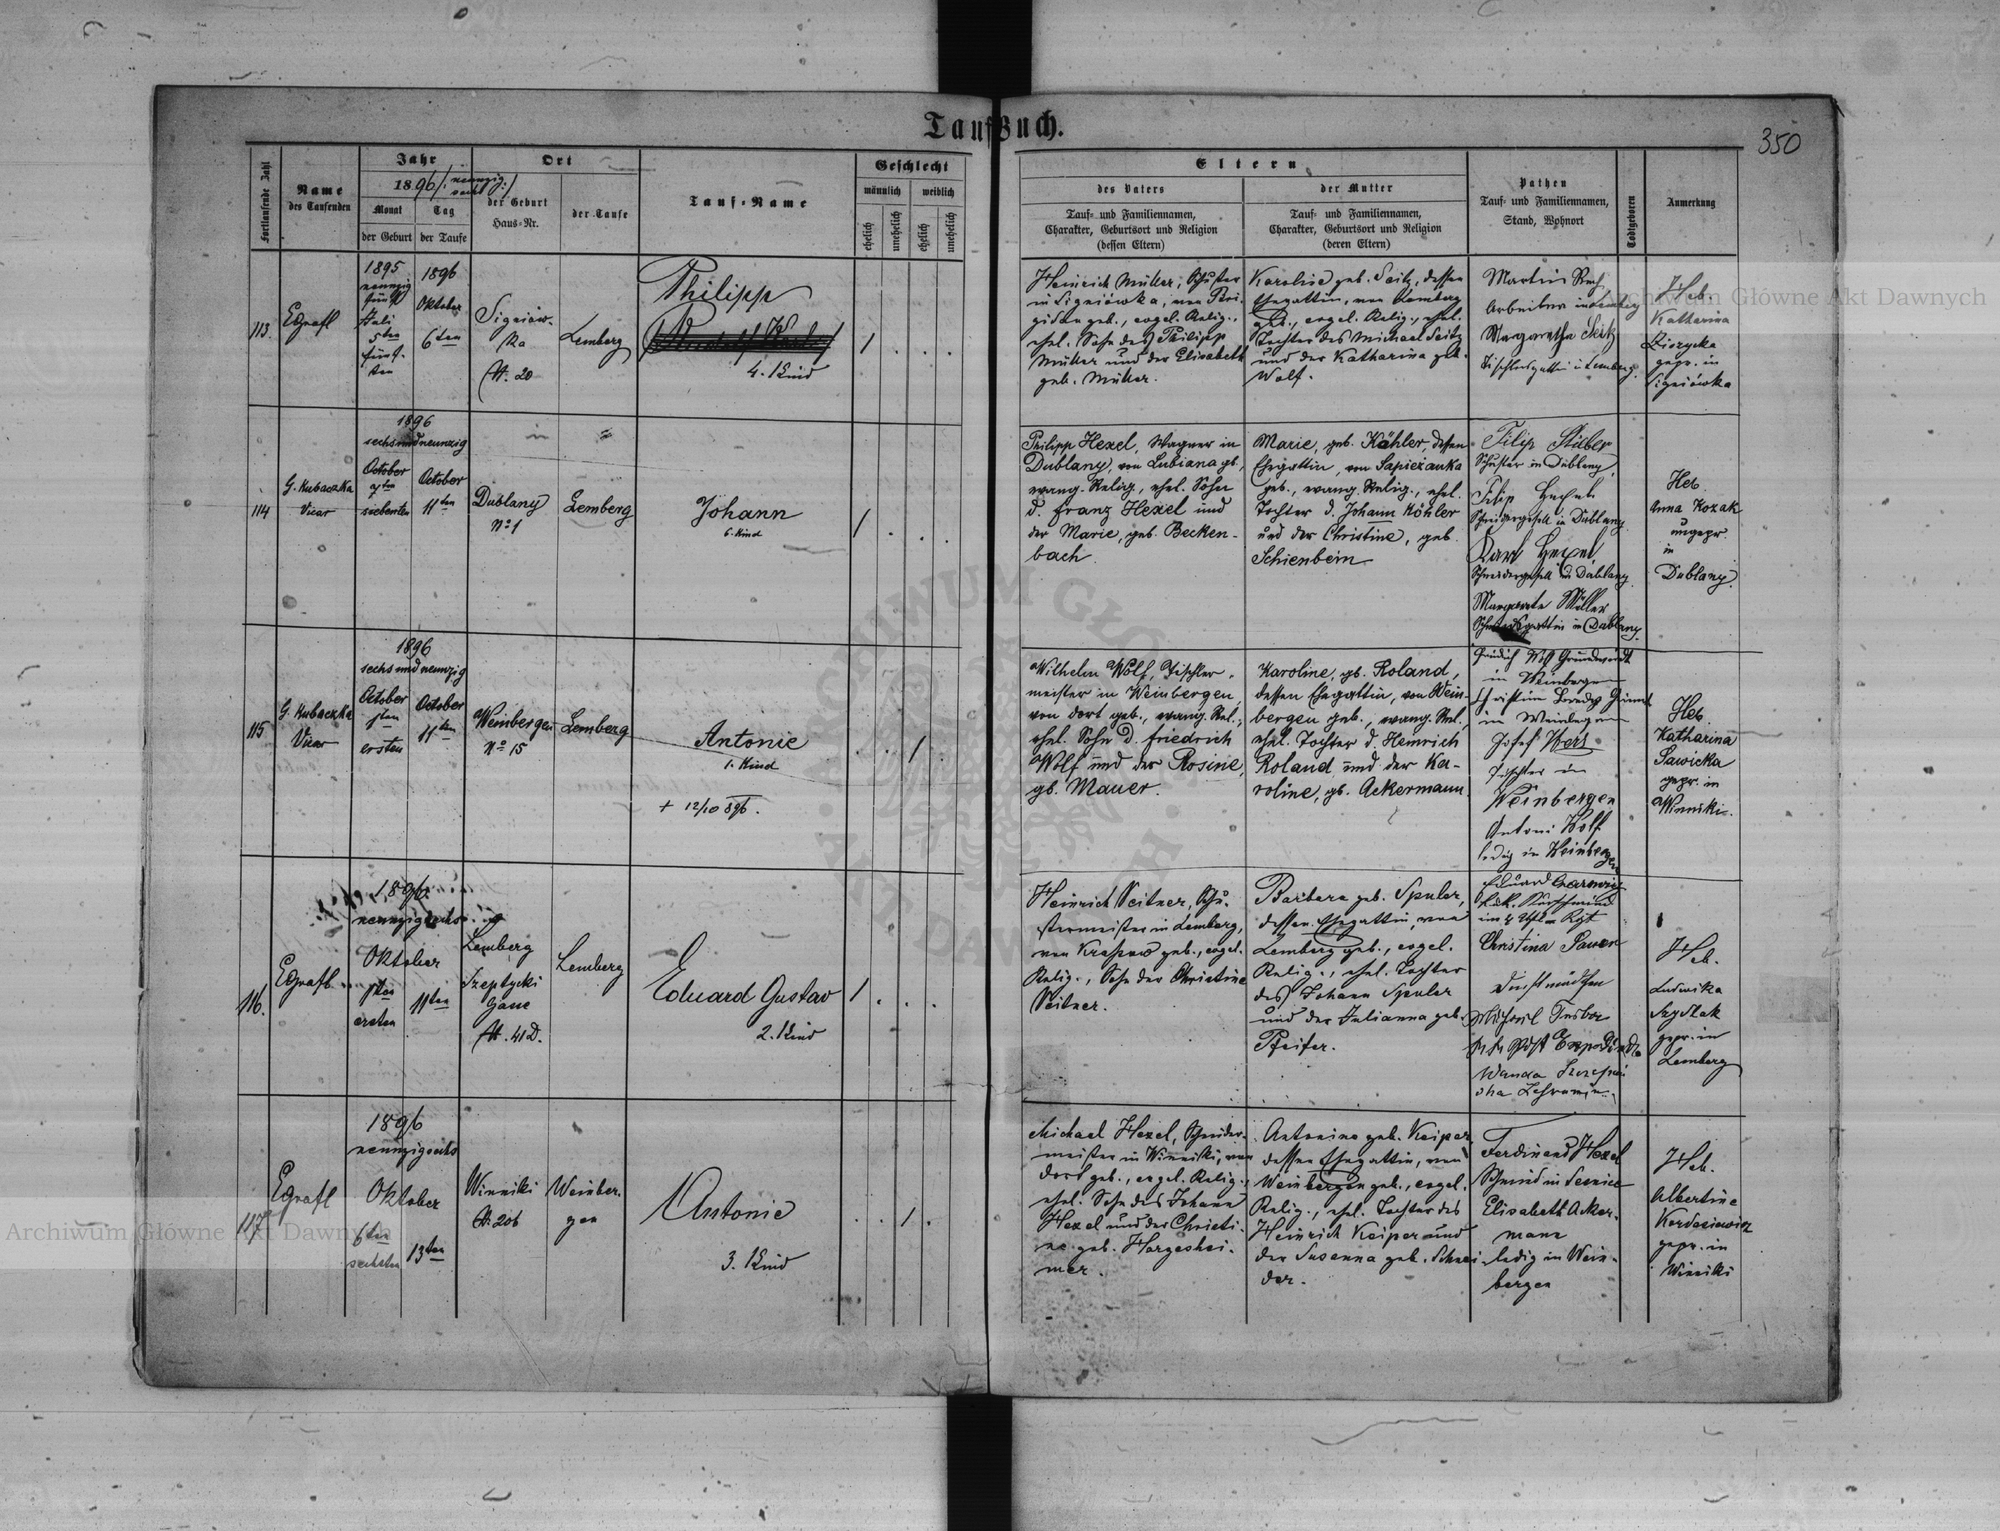 TaufBuch.
350
Fortlaufende Zahl
Name
des Taufenden
Jahr
1896 /: neunzig
sechs :/
Monat
Tag
der Geburt
der Taufe
Ort
der Geburt
Haus-Nr.
der Taufe
Tauf-Name
Geschlecht
männlich
weiblich
ehelich
unehelich
ehelich
unehelich
Eltern
des Vaters
Tauf- und Familiennamen,
Charakter, Geburtsort und Religion
(dessen Eltern)
der Mutter
Tauf- und Familiennamen,
Charakter, Geburtsort und Religion
(deren Eltern)
Pathen
Tauf- und Familiennamen,
Stand, Wohnort
Todtgeboren
Anmerkung
113.
Egrafl
1895
neunzig
fünf
Juli
5ten
fünf-
ten
1896
Oktober
6ten
Signiów-
ka
N. 20
Lemberg
Philipp
4. Kind
1
Heinrich Müller, Schuster
in Signiówka, von
geb., evgel. Relig.,
ehel. Sohn des Philipp
Müller und der Elisabeth
geb. Müller.
Karoline geb. Seitz, dessen
Ehegattin, von Lemberg
geb., evgel. Relig., ehel.
Tochter des Michael Seitz
und der Katharina geb.
Wolf.
Martin
Arbeiter in Lemberg
Margaretha Seitz
Tischlersgattin in Lemberg.
Heb.
Katharina
gepr. in
Signiówka
114
G. Kubaczka
Vicar
1896
sechsundneunzig
October
7ten
siebenten
October
11ten
Dublany
No 1
Lemberg
Johann
6. Kind
1
Philipp Hexel, Wagner in
Dublany, von Lubiana gb.,
evang. Relig., ehel. Sohn
d. Franz Hexel und
der Marie, geb. Becken-
bach
Marie, geb. Köhler, dessen
Ehegattin, von Sapieżanka
geb., evang. Relig., ehel.
Tochter d. Johann Köhler
und der Christine, geb.
Schienbein
Filip Stüber
Schuster in Dublany,
Filip Hexel
Schneidergesell in Dublany
Karl Hexel
Schneidergesell in Dublany
Margarete Müller
in Dublany.
Heb
Anna Kozak
ungepr.
in
Dublany.
115
G. Kubaczka
Vicar
1896
sechsundneunzig
October
1ten
ersten
October
11ten
Weinbergen
No 15
Lemberg
Antonie
1. Kind
+ 12/10 896.
1
Wilhelm Wolf, Tischler-
meister in Weinbergen,
von dort geb., evang. Rel.,
ehel. Sohn d. Friedrich
Wolf und der Rosine,
gb. Mauer.
Karoline, gb. Roland,
dessen Ehegattin, von Wein-
bergen geb., evang. Rel.,
ehel. Tochter d. Heinrich
Roland und der Ka-
roline, gb. Ackermann.
in Weinbergen
in Weinbergen
Josef
Tischler in
Weinbergen
Antoni Wolf
ledig in Weinbergen
Heb.
Katharina
Sawicka
gepr. in
Winniki.
116.
Egrafl
1896
neunzigsechs
Oktober
1ten
ersten
11ten
Lemberg
Szeptycki
Gasse
N. 41 D.
Lemberg
Eduard Gustav
2. Kind
1
Heinrich Seitner, Schu-
stermeister in Lemberg,
von geb., evgel.
Relig., Sohn der Christine
Seitner.
Barbara geb. Spuler,
dessen Ehegattin, von
Lemberg geb., evgel.
Relig., ehel. Tochter
des Johann Spuler
und der Julianna geb.
Pfeifer.
Eduard
Christina
Dienstmädchen
Michael
k. k. Post
Wanda
Heb.
Ludwika
gepr. in
Lemberg
117
Egrafl
1896
neunzigsechs
Oktober
6ten
sechsten
13ten
Winniki
N. 206
Weinber-
gen
Antonie
3. Kind
1
Michael Hexel, Schnider-
meister in Winniki, von
dort geb., evgel. Relig.,
ehel. Sohn des Johann
Hexel und der Christi-
ne geb. Hargeshei-
mer.
Antonine geb. Keiper,
dessen Ehegattin, von
Weinbergen geb., evgel.
Relig., ehel. Tochter des
Heinrich Keiper und
der Susanna geb. Schnei-
der.
Ferdinand Hexel
Schmied in
Elisabeth Acker-
mann
ledig in Wein-
bergen
Heb.
Albertine
gepr. in
Winniki
Archiwum Główne Akt Dawnych
Archiwum Główne Akt Dawnych
ARCHIWUM GŁÓWNE AKT DAWNYCH